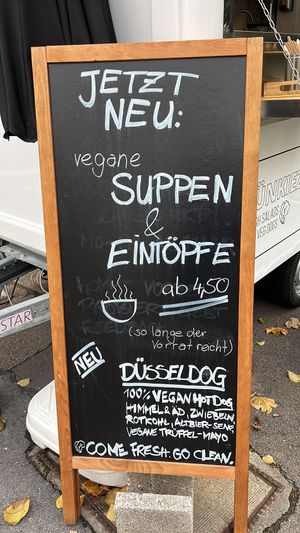 JETZT
NEU:
vegane
SUPPEN
&
EINTÖPFE
ab 4,50
(so lange der
Vorrat reicht)
NEU
DÜSSELDOG
100% VEGAN HOT DOG
HIMMEL & ÄD, ZWIEBELN,
ROTKOHL, ALTBIER-SENF,
VEGANE TRÜFFEL-MAYO
COME FRESH. GO CLEAN.
STAR